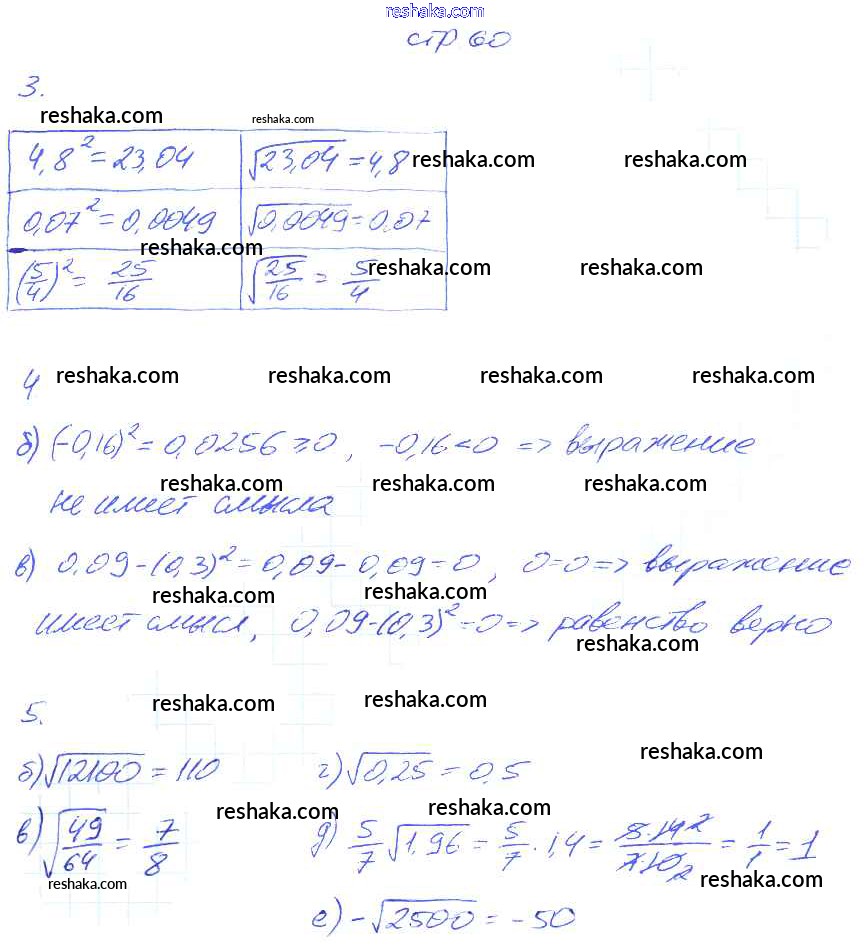 reshaka.com
стр 60
3.
reshaka.com reshaka.com
4,8² = 23,04 √23,04 = 4,8 reshaka.com reshaka.com
0,07² = 0,0049 √0,0049 = 0,07
reshaka.com
(5/4)² = 25/16 √25/16 = 5/4 reshaka.com reshaka.com
4 reshaka.com reshaka.com reshaka.com reshaka.com
б) (-0,16)² = 0,0256 ≥ 0, -0,16 < 0 => выражение
reshaka.com reshaka.com reshaka.com
не имеет смысла
в) 0,09-(0,3)² = 0,09-0,09=0, 0=0 => выражение
reshaka.com reshaka.com
имеет смысл, 0,09-(0,3)² = 0 => равенство верно
reshaka.com
5. reshaka.com reshaka.com
reshaka.com
б) √12100 = 110 г) √0,25 = 0,5
reshaka.com reshaka.com
в) √49/64 = 7/8 д) 5/7 √1,96 = 5/7 · 1,4 = 5·14 2/7·10 2 = 1/1 = 1
reshaka.com reshaka.com
е) -√2500 = -50